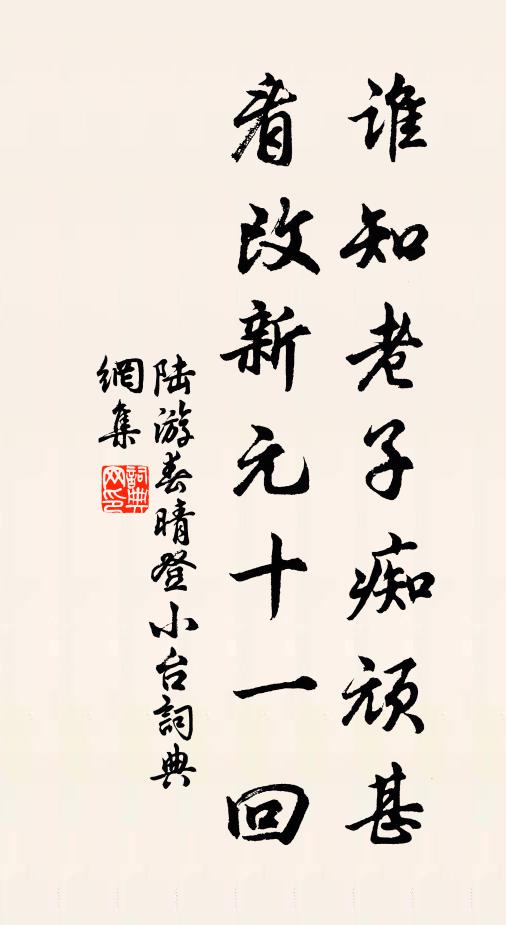 谁知老子痴顽甚
看改新元十一回
陆游春晴登小台詞典
網集
詞典
网印